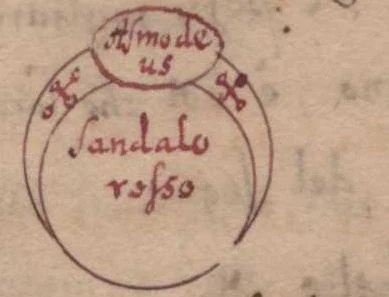 Asmode
us
sandalo
rosso
del